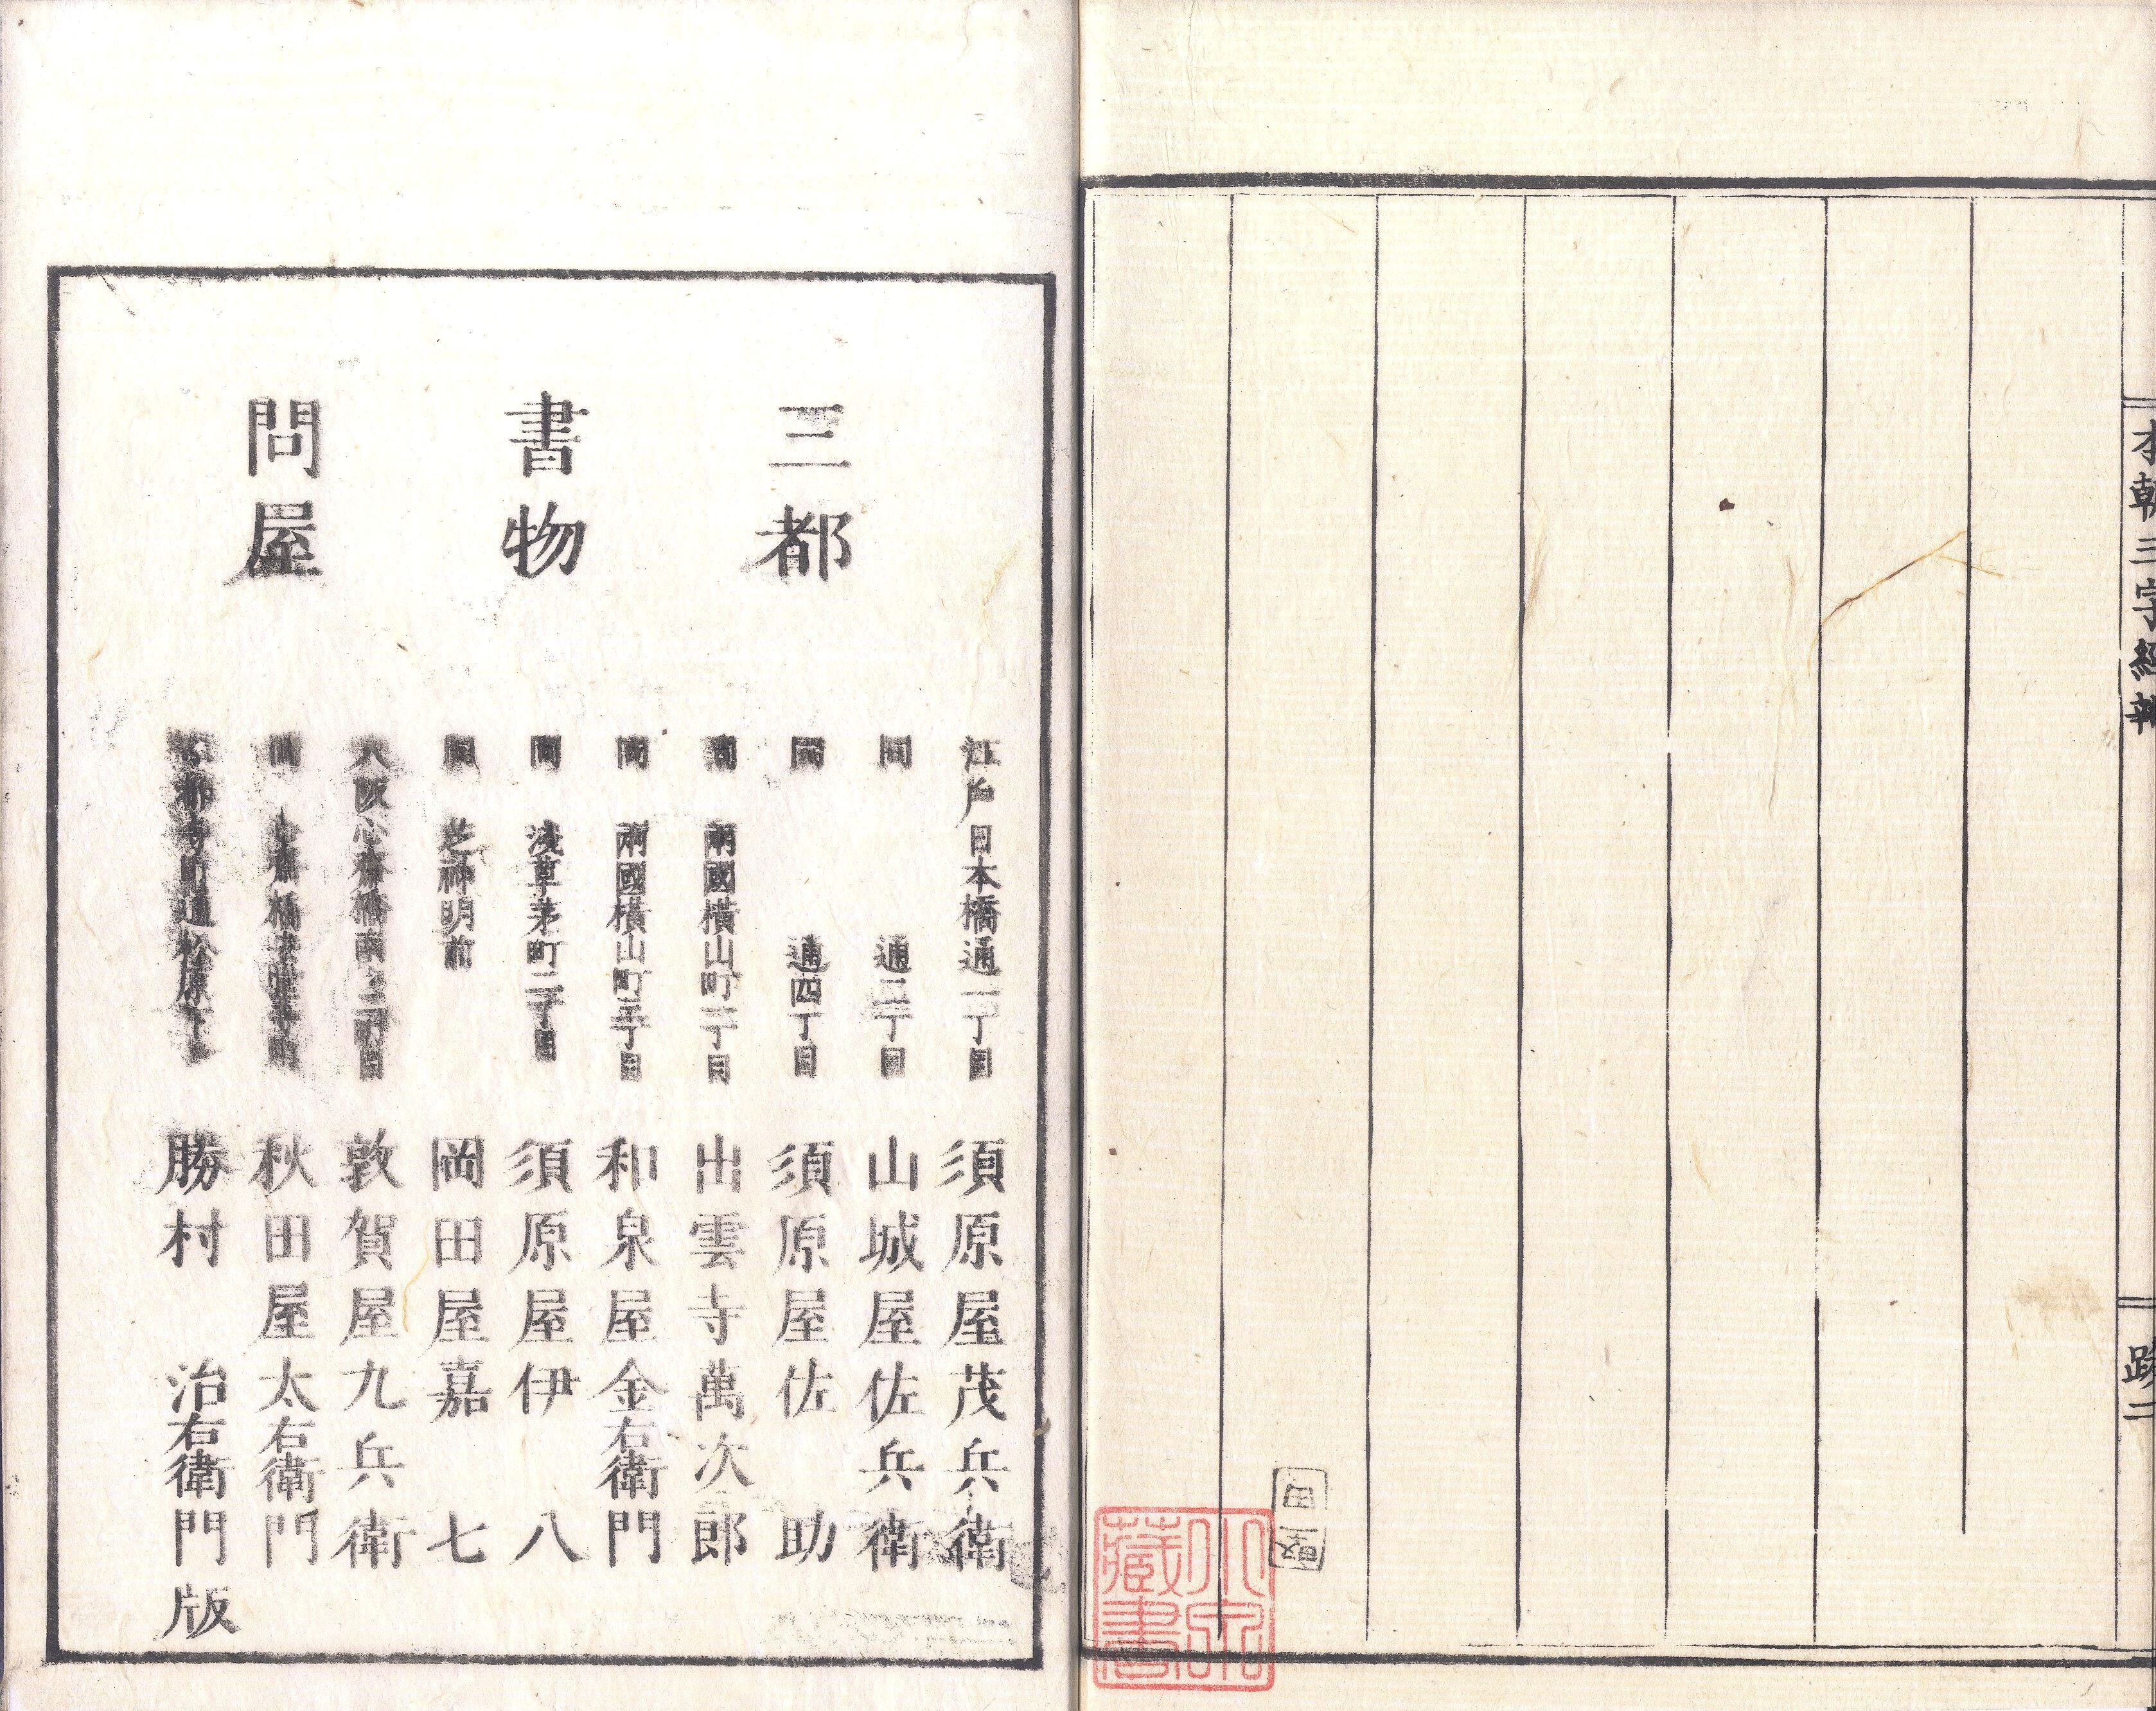 本朝三字經
跋二
三都
書物
問屋
江戸日本橋通一丁目 須原屋茂兵衛
同 通二丁目 山城屋佐兵衛
同 通四丁目 須原屋佐助
同 兩國横山町一丁目 出雲寺萬次郎
同 兩國横山町三丁目 和泉屋金右衛門
同 淺草茅町二丁目 須原屋伊八
同 芝神明前 岡田屋嘉七
大阪心斎橋 敦賀屋九兵衛
同 心斎橋 秋田屋太右衛門
京都寺町通松原下 勝村治右衛門版
藏書